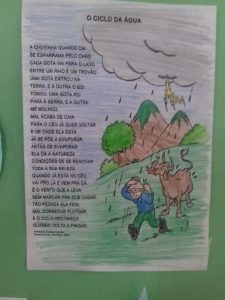 O CICLO DA ÁGUA
A CHUVINHA QUANDO CAI
SE ESPARRAMA PELO CHÃO
CADA GOTA VAI PARA O LADO
ENTRE UM RAIO E UM TROVÃO.
UMA GOTA ENTROU NA
TERRA, E A OUTRA O BOI
TOMOU. UMA GOTA FOI
PARA A SERRA, E A OUTRA
ME MOLHOU.
MAL ACABA DE CAIR
PARA O CÉU JÁ QUER VOLTAR
E DE ONDE ELA ESTÁ
JÁ SE PÕE A EVAPORAR
ANTES DE EVAPORAR
ELA DÁ A NATUREZA
CONDIÇÕES DE SE RENOVAR
TODA A SUA BELEZA.
QUANDO JÁ ESTÁ NO CÉU,
VAI PRO LÁ E VEM PRA CÁ
É O VENTO QUE A LEVA
SEM MARCAR PRA QUE LUGAR.
TÃO PESADA ELA FICA,
MAL CONSEGUE FLUTUAR
E O CICLO RECOMEÇA
QUANDO VOLTA A PINGAR.